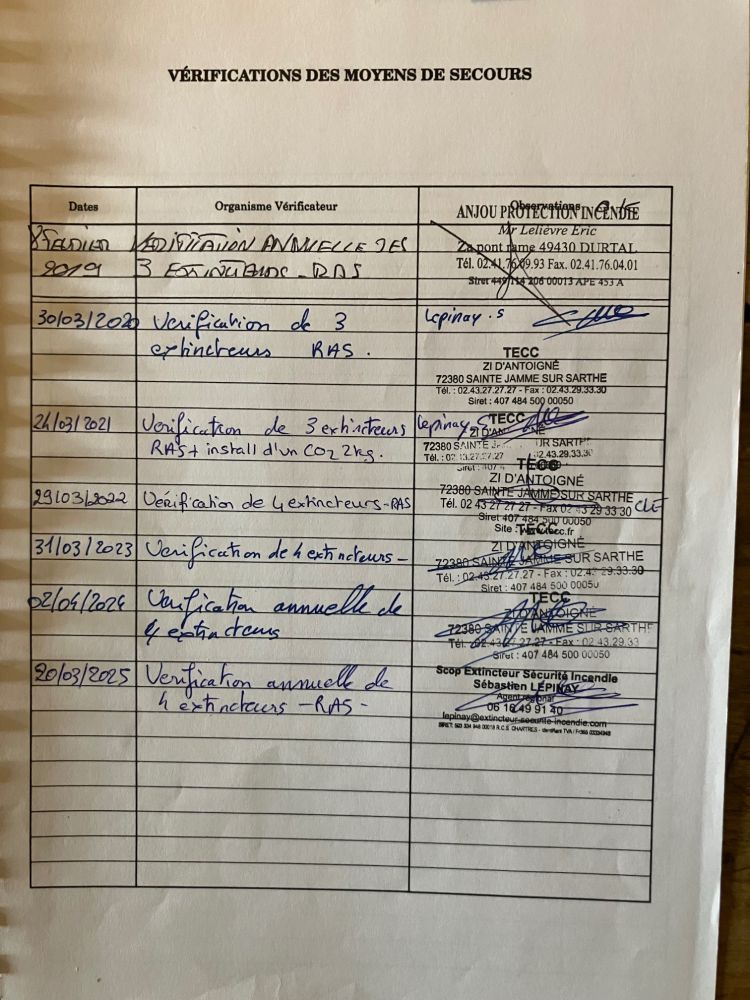 VÉRIFICATIONS DES MOYENS DE SECOURS
Dates
Organisme Vérificateur
Observations
ANJOU PROTECTION INCENDIE
Mr Lelièvre Eric
Za pont rame 49430 DURTAL
Tél. 02.41.76.09.93 Fax. 02.41.76.04.01
Siret 449 114 206 00013 APE 453 A
2019
ANNUELLE DES
3 EXTINCTEURS - RAS
30/03/2020
Vérification de 3
extincteurs RAS.
Lepinay.S
TECC
ZI D'ANTOIGNÉ
72380 SAINTE JAMME SUR SARTHE
Tél. : 02.43.27.27.27 - Fax : 02.43.29.33.30
Siret : 407 484 500 00050
24/03/2021
Vérification de 3 extincteurs
RAS + install d'un CO2 2kg.
Lepinay.S
TECC
72380 SAINTE
UR SARTH
Tél. :
.43.29.33.3
29/03/2022
Vérification de 4 extincteurs - RAS
TECC
ZI D'ANTOIGNÉ
72380 SAINTE JAMME SUR SARTHE
Tél. 02 43 27 27 27 - Fax 02 43 29 33 30
Siret 407 484 500 00050
Site :
31/03/2023
Vérification de 4 extincteurs -
TECC
ZI D'ANTOIGNÉ
72380 SAINTE JAMME SUR SARTHE
Tél. : 02.43.27.27.27 - Fax : 02.43.29.33.30
Siret : 407 484 500 00050
02/04/2024
Vérification annuelle de
4 extincteurs
TECC
ZI D'ANTOIGNÉ
72380 SAINTE JAMME SUR SARTHE
Tél. 02.43.27.27.27 - Fax : 02.43.29.33
Siret : 407 484 500 00050
20/03/2025
Vérification annuelle de
4 extincteurs - RAS -
Scop Extincteur Sécurité Incendie
Sébastien LÉPINAY
Agent régional
06 16 49 91 40
lepinay@extincteur-securite-incendie.com